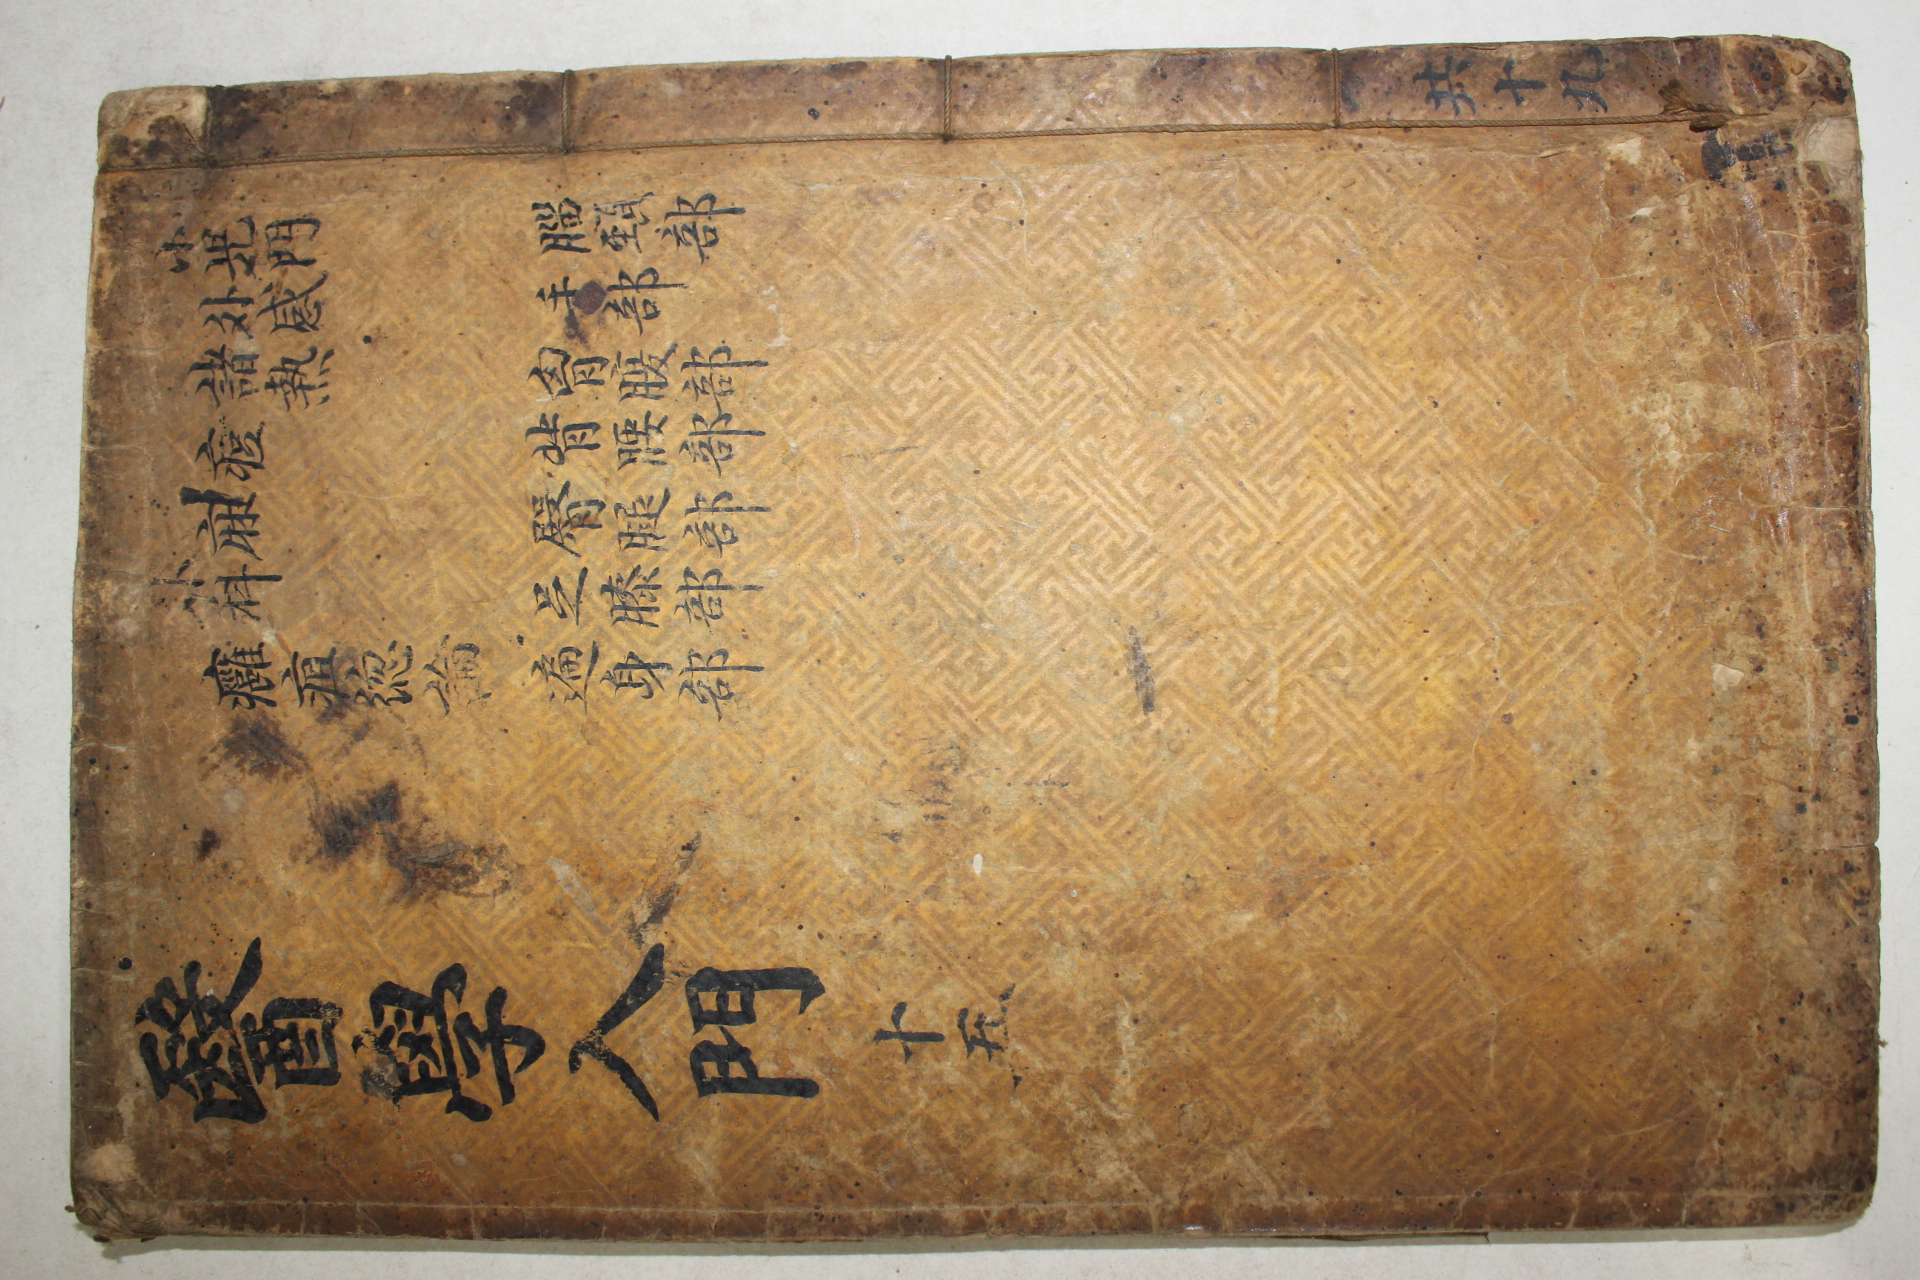 小兒門
外感
諸熱
痘
麻
外科
癰疽總論
腦頸部
手部
胷腹部
背腰部
臀腿部
足膝部
遍身部
醫學入門
十五
共十九